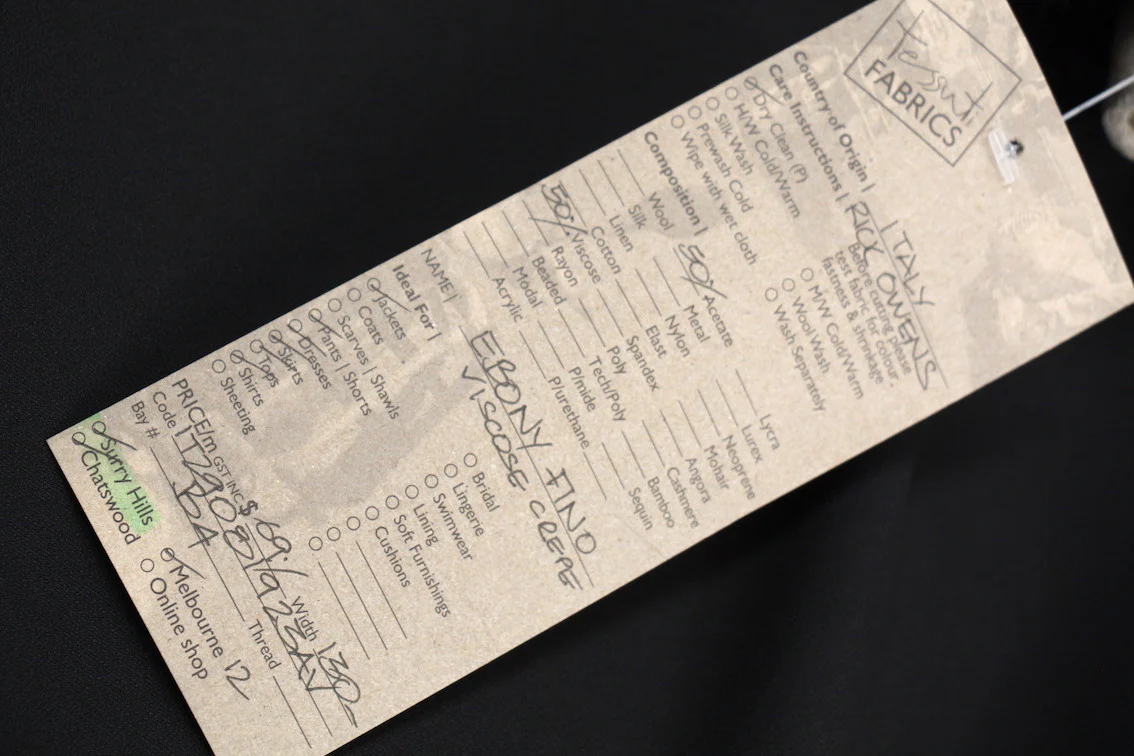 tessuti
FABRICS
Country of Origin | ITALY
RICK OWENS
Care Instructions | Before cutting please
test fabric for colour,
fastness & shrinkage
Dry Clean (P)
H/W Cold/Warm
Silk Wash
Prewash Cold
Wipe with wet cloth
M/W Cold/Warm
Wool Wash
Wash Separately
Composition | 50% Acetate
Wool Metal Lycra
Silk Nylon Lurex
Linen Elast Neoprene
Cotton Spandex Mohair
50% Viscose Poly Angora
Rayon Tech/Poly Cashmere
Beaded P/mide Bamboo
Modal P/urethane Sequin
Acrylic
NAME | EBONY FINO
VISCOSE CREPE
Ideal For |
Jackets
Coats
Scarves | Shawls
Pants | Shorts
Dresses
Skirts
Tops
Shirts
Sheeting
Bridal
Lingerie
Swimwear
Lining
Soft Furnishings
Cushions
PRICE/m GST INC $69.- Width 130-
Code
Bay # Thread
Surry Hills Melbourne 12
Chatswood Online shop